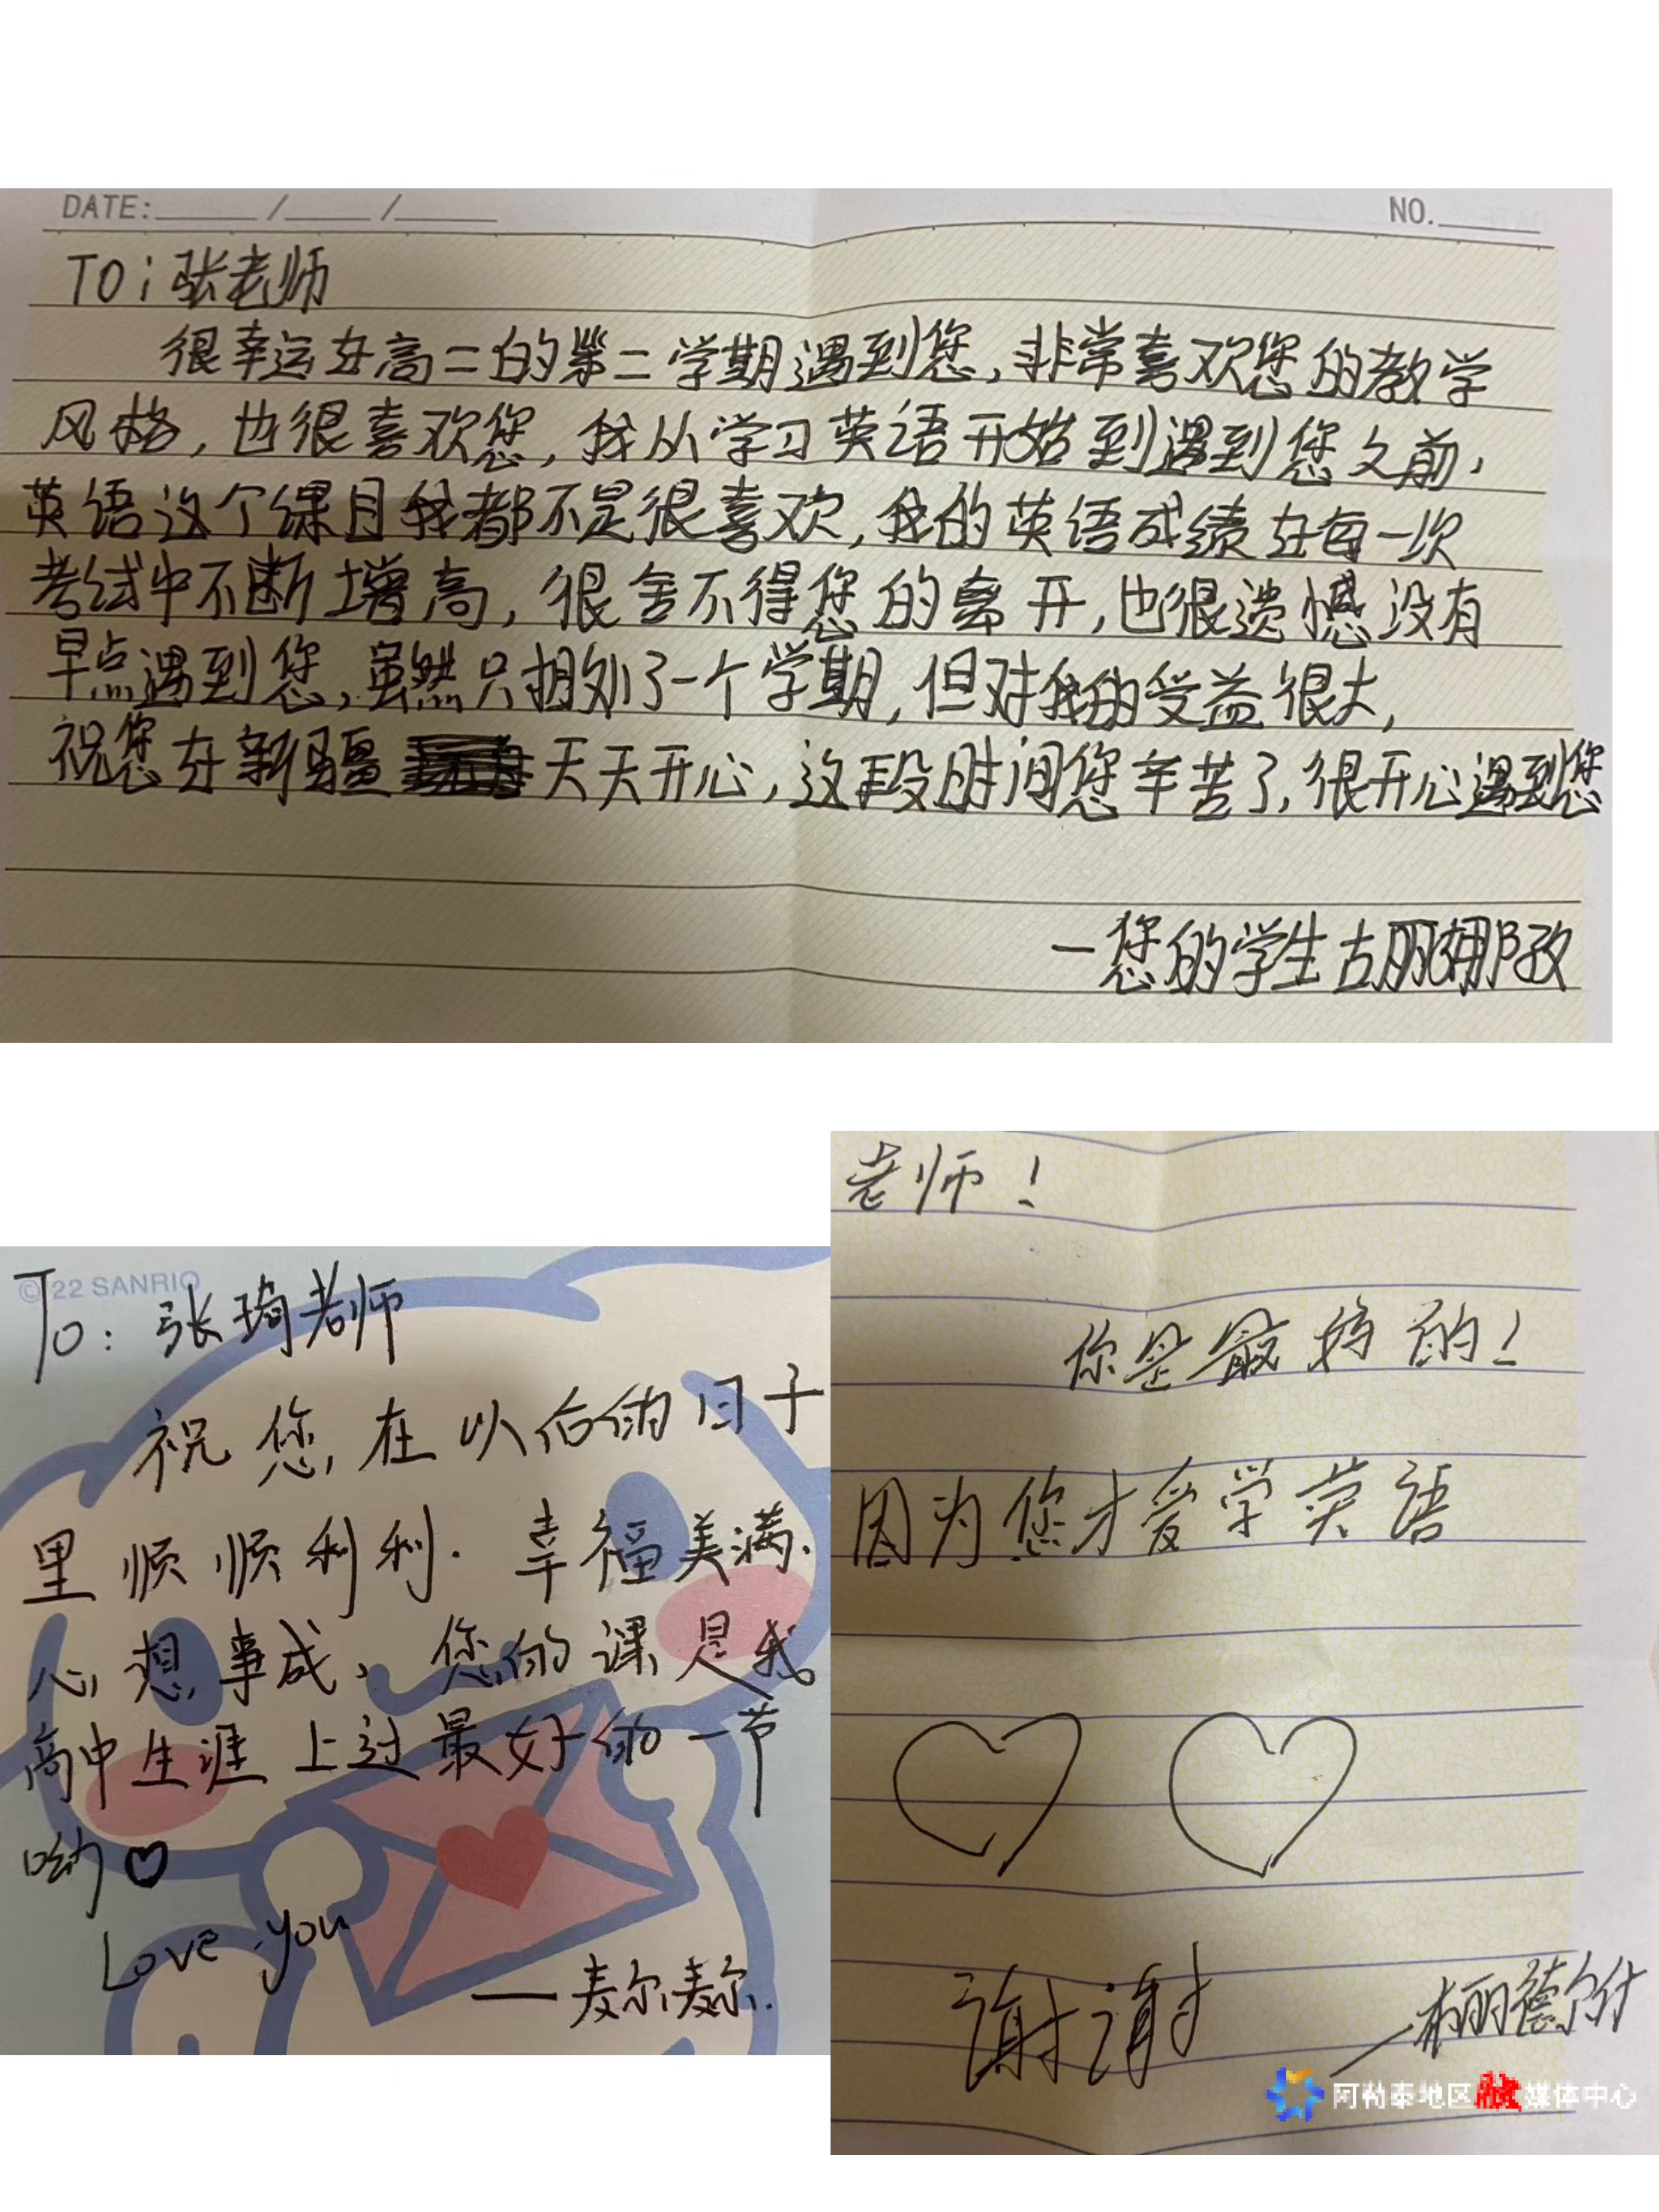 DATE: / / NO.
TO：张老师
很幸运在高二的第二学期遇到您，非常喜欢您的教学
风格，也很喜欢您，我从学习英语开始到遇到您之前，
英语这个课目我都不是很喜欢，我的英语成绩在每一次
考试中不断增高，很舍不得您的离开，也很遗憾没有
早点遇到您，虽然只相处了一个学期，但对我的受益很大，
祝您在新疆天天开心，这段时间您辛苦了，很开心遇到您
一您的学生古丽娜孜
© 22 SANRIO
To：张琦老师
祝您在以后的日子
里顺顺利利．幸福美满、
心想事成、您的课是我
高中生涯上过最好的一节
哟♡
Love you
——麦尔麦尔．
老师！
你是最好的！
因为您才爱学英语
谢谢
阿勒泰地区融媒体中心